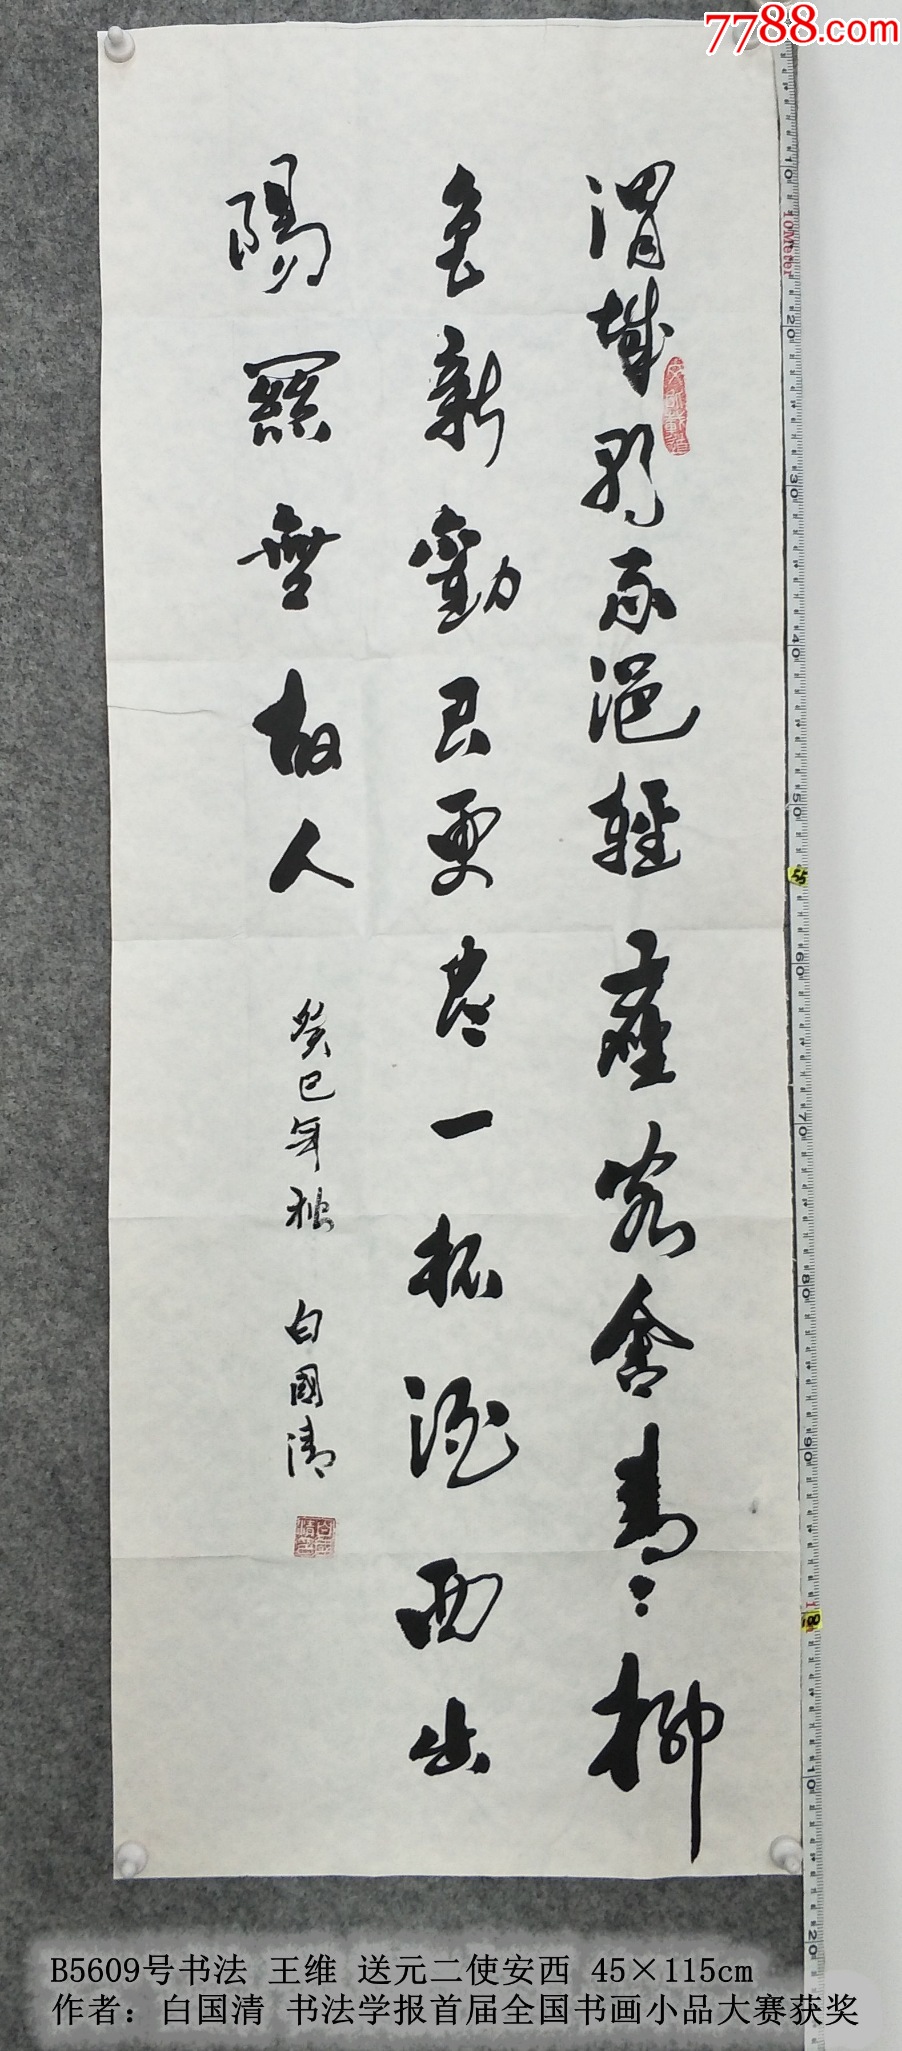 7788.com
渭城朝雨浥輕塵客舍青〻柳
色新勸君更盡一杯酒西出
陽關無故人
癸巳年秋 白國清
10Meter
B5609号书法 王维 送元二使安西 45×115cm
作者：白国清 书法学报首届全国书画小品大赛获奖